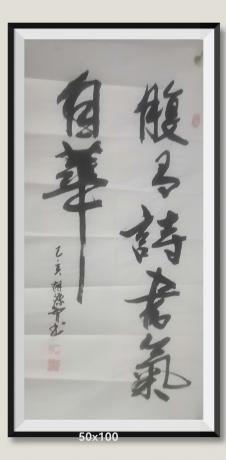 腹有詩書氣
自華
己亥
50x100